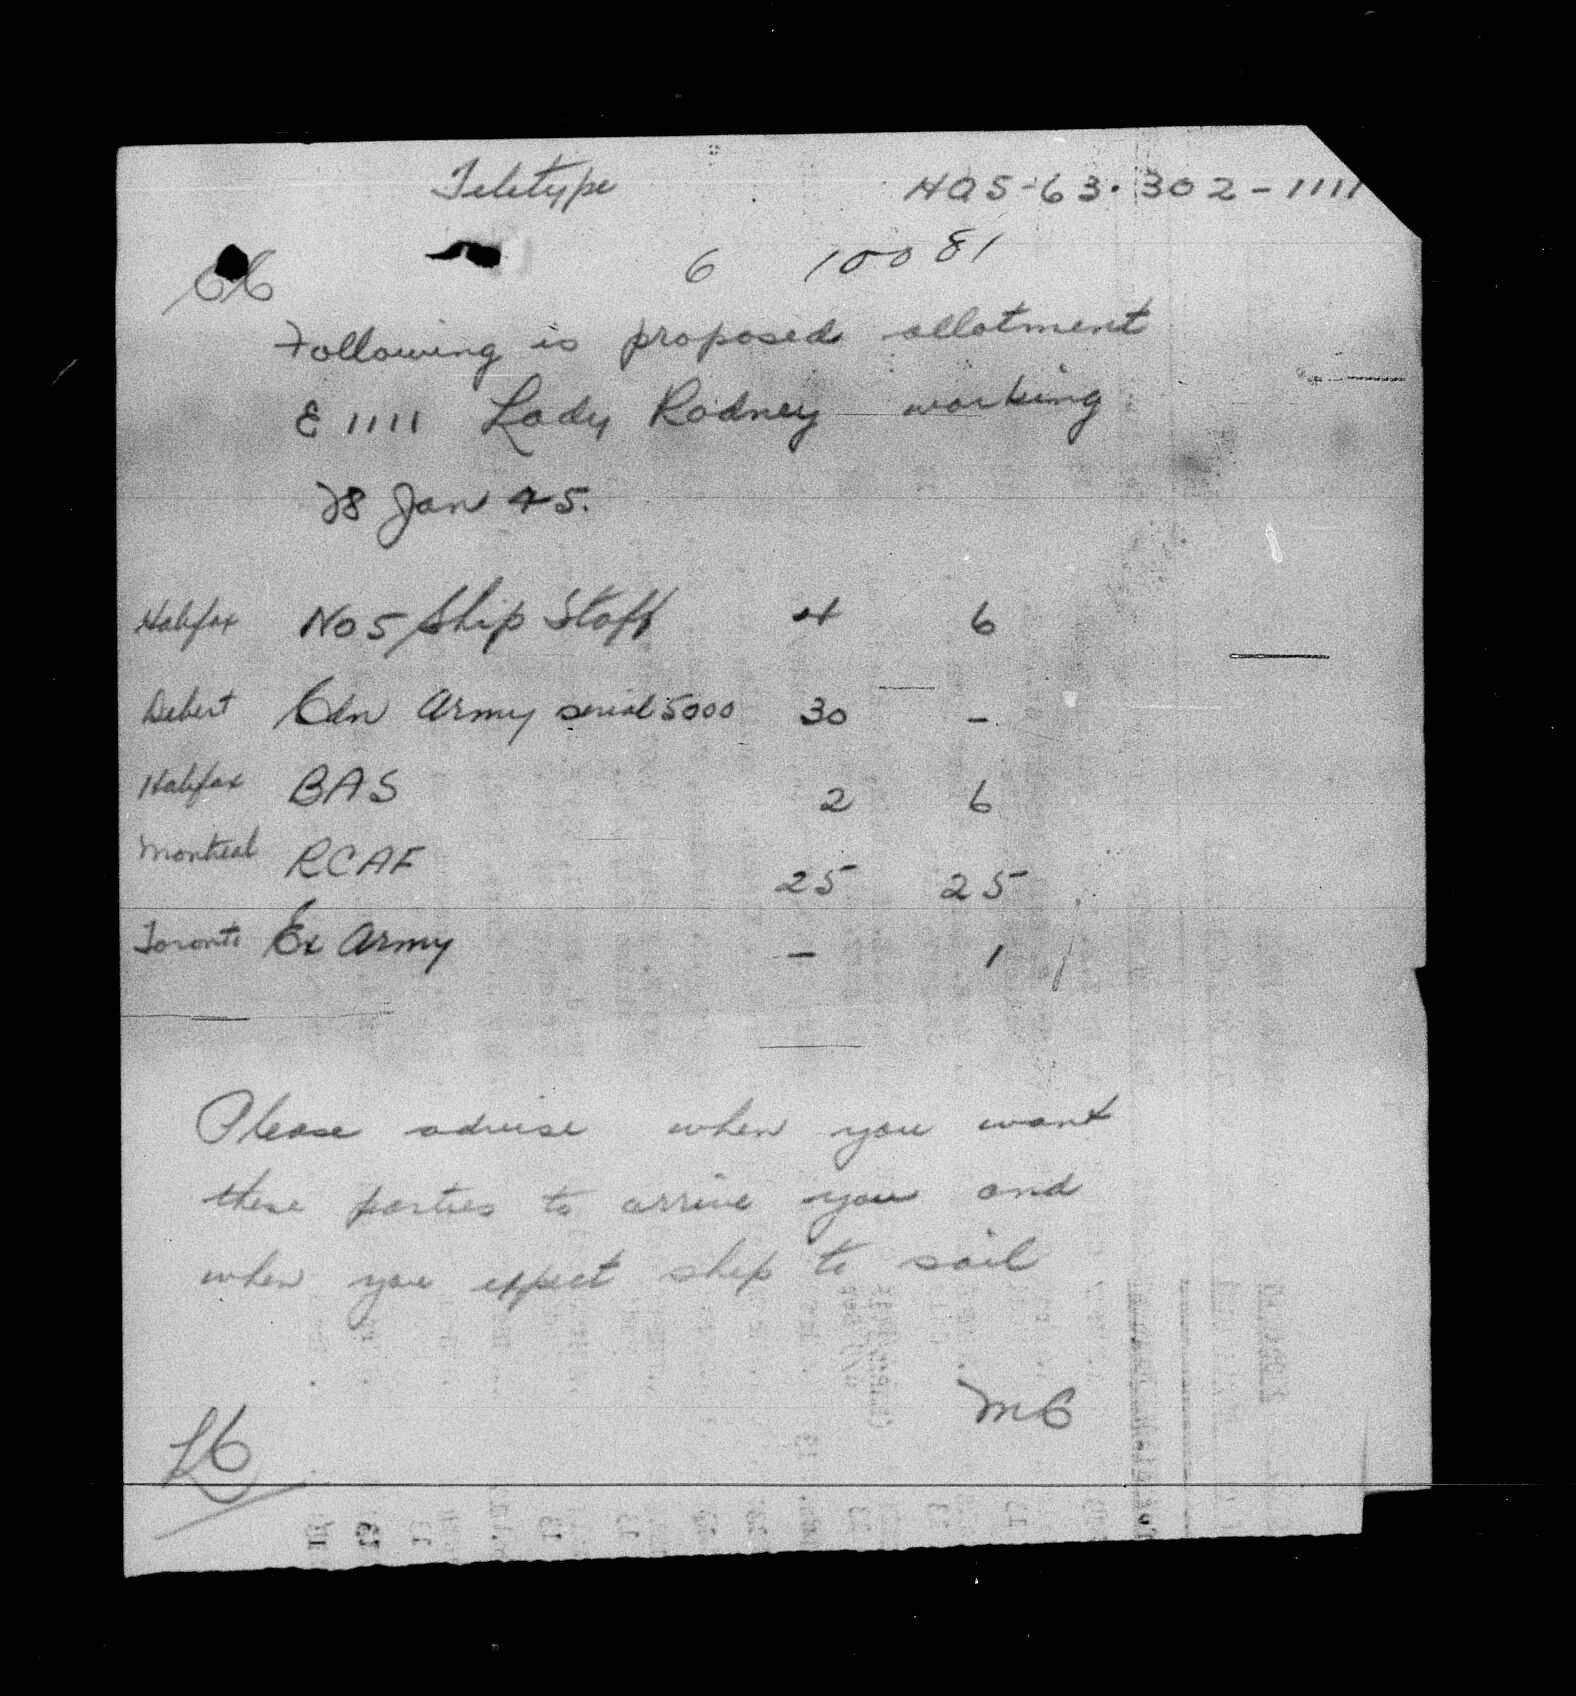 Teletype HQS-63.302-1111
6 10081
Following is proposed allotment
E 1111 Lady Rodney working
28 Jan 45.
Halifax No 5 Ship Staff 4 6
Debert Cdn Army serial 5000 30 -
Halifax BAS 2 6
Montreal RCAF 25 25
Toronto Ex Army - 1
Please advise when you want
these parties to arrive you and
when you expect ship to sail
MC